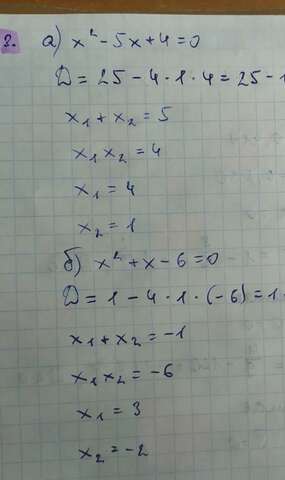 3. а) x² - 5x + 4 = 0
D = 25 - 4 · 1 · 4 = 25 - 1
x₁ + x₂ = 5
x₁ x₂ = 4
x₁ = 4
x₂ = 1
б) x² + x - 6 = 0
D = 1 - 4 · 1 · (-6) = 1
x₁ + x₂ = -1
x₁ x₂ = -6
x₁ = 3
x₂ = -2